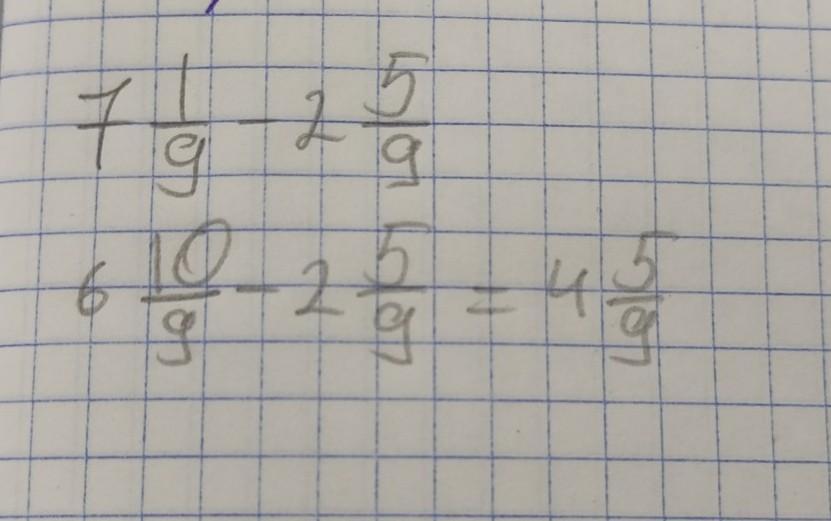 7 1/9 - 2 5/9
6 10/9 - 2 5/9 = 4 5/9